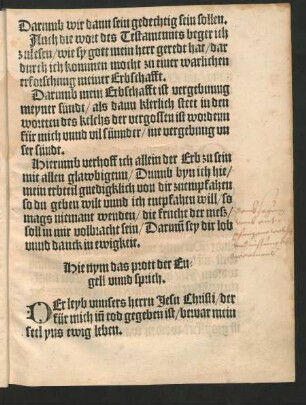 Darumb wir dann sein gedechtig sein sollen.
Auch die wort des Testamentes beger ich
zulesen/ wie sy gott mein herr geredt hat/ dar
durch ich kommen möcht zu einer warlichen
erforschung meiner Erbschafft.
Darumb mein Erbschafft ist vergebung
meyner sünde/ als dann klerlich steet in den
worten des kelchs der vergossen ist worden
für mich vnnd vil sünnder/ ine vergebung vn
ser sünde.
Hierumb verhoff ich allein der Erb zu sein
mit allen glawbigenn/ Dumb byn ich hie/
mein erbteil gnediglich von dir zuempfahen
so du geben wilt vnnd ich empfahen will/ so
mags niemant wenden/ die frucht der meß/
soll in mir volbracht sein/ Darum̄ sey dir lob
vnnd danck in ewigkeit.
Hie nym das prott der En-
geli vnnd sprich.
Der leyb vnnsers herrn Jesu Christi/ der
für mich im̄ tod gegeben ist/ bewar mein
seel yns ewig leben.